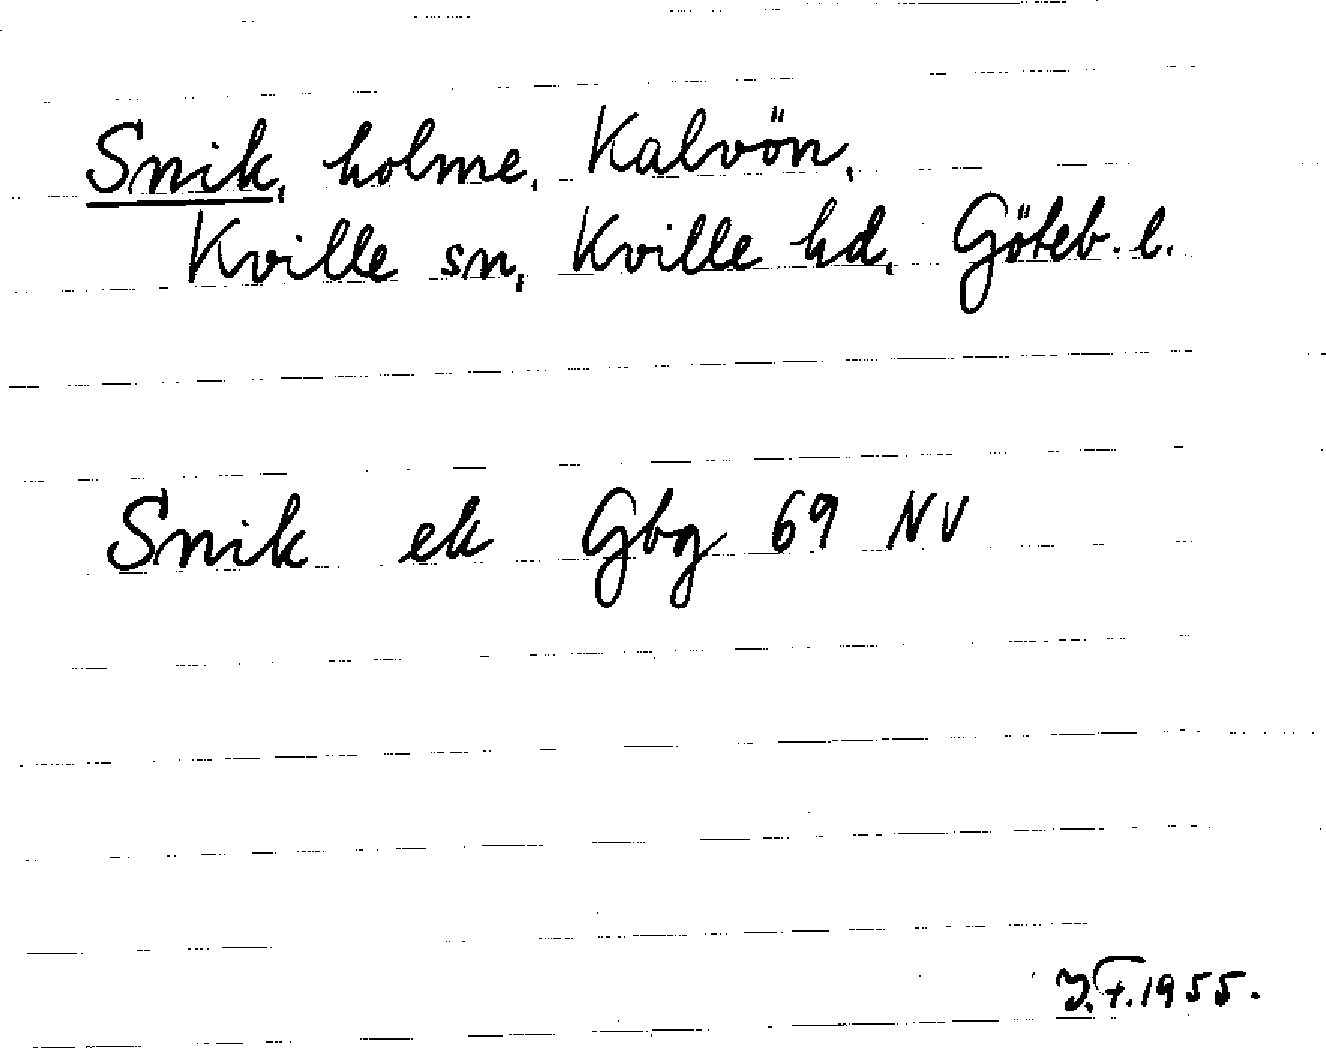 Snik, holme, Kalvön,
Kville sn, Kville hd, Göteb. l.
Snik ek Gbg 69 NV
J.F. 1955.